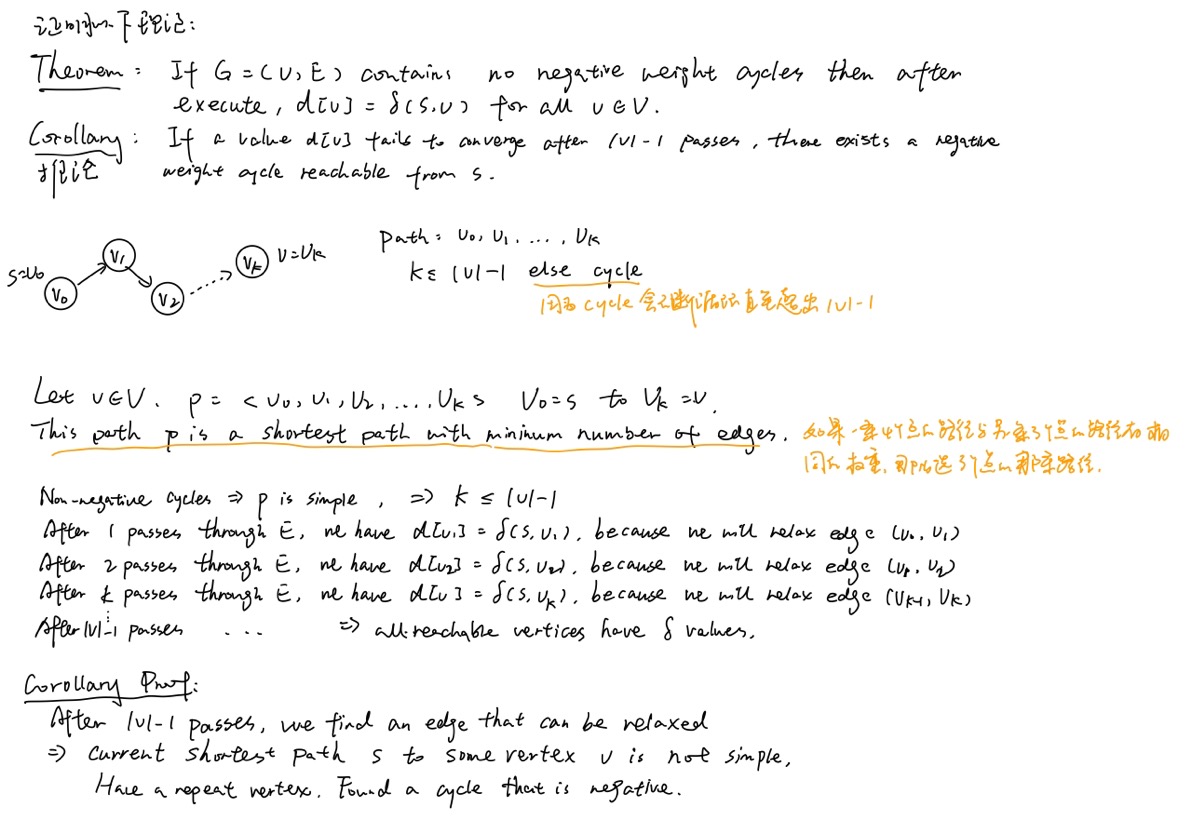 证明以下理论:
Theorem: If G=(V,E) contains no negative weight cycles then after
execute, d[v] = δ(s,v) for all v∈V.
Corollary: If a value d[v] fails to converge after |V|-1 passes, there exists a negative
推论 weight cycle reachable from s.
path: v₀, v₁, ..., vₖ
k≤ |V|-1 else cycle
因为 cycle 会 直至 出 |V|-1
s=v₀
v₀
v₁
v₂
vₖ
v=vₖ
Let v∈V. p= <v₀, v₁, v₂, ..., vₖ> v₀=s to vₖ=v.
This path p is a shortest path with minimum number of edges.
如果一条4个点的路径与另一条3个点的路径有相
同的权重, 那么选3个点的那条路径.
Non-negative cycles ⇒ p is simple, ⇒ k ≤ |V|-1
After 1 passes through E, we have d[v₁] = δ(s,v₁), because we will relax edge (v₀, v₁)
After 2 passes through E, we have d[v₂] = δ(s,v₂), because we will relax edge (v₁, v₂)
After k passes through E, we have d[v] = δ(s,vₖ), because we will relax edge (vₖ₋₁, vₖ)
⋮
After |V|-1 passes ... ⇒ all reachable vertices have δ values.
Corollary Proof:
After |V|-1 passes, we find an edge that can be relaxed
⇒ current shortest path s to some vertex v is not simple,
Have a repeat vertex. Found a cycle that is negative.